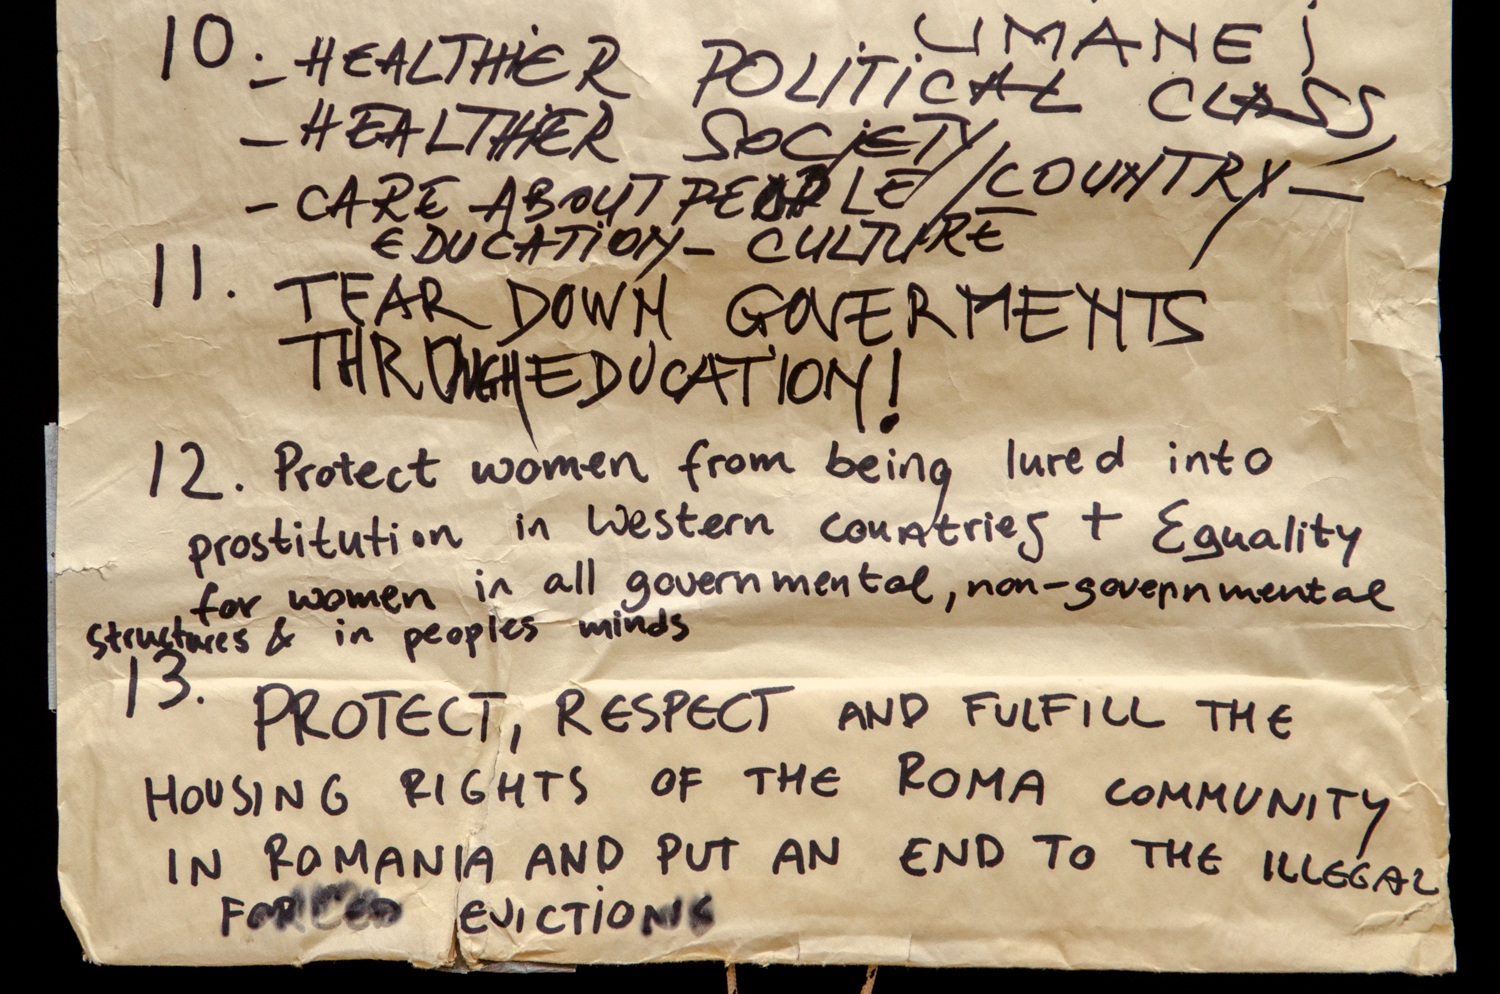 UMANE;
10. - HEALTHIER POLITICAL CLASS,
- HEALTHIER SOCIETY
- CARE ABOUT PEOPLE / COUNTRY -
EDUCATION - CULTURE
11. TEAR DOWN GOVERMENTS
THROUGH EDUCATION!
12. Protect women from being lured into
prostitution in Western countries + Equality
for women in all governmental, non-governmental
structures & in peoples minds
13. PROTECT, RESPECT AND FULFILL THE
HOUSING RIGHTS OF THE ROMA COMMUNITY
IN ROMANIA AND PUT AN END TO THE ILLEGAL
FORCED EVICTIONS